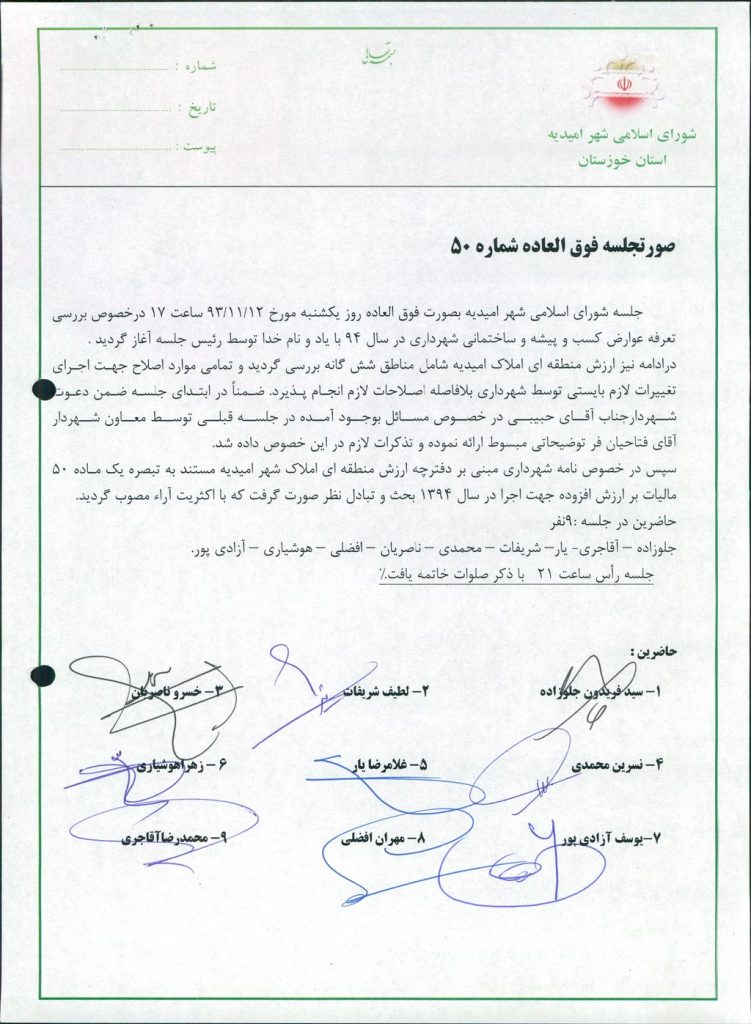 بسمه تعالی
شورای اسلامی شهر امیدیه
استان خوزستان
شماره :
تاریخ :
پیوست :
صورتجلسه فوق العاده شماره ۵۰
جلسه شورای اسلامی شهر امیدیه بصورت فوق العاده روز یکشنبه مورخ ۹۳/۱۱/۱۲ ساعت ۱۷ درخصوص بررسی
تعرفه عوارض کسب و پیشه و ساختمانی شهرداری در سال ۹۴ با یاد و نام خدا توسط رئیس جلسه آغاز گردید .
درادامه نیز ارزش منطقه ای املاک امیدیه شامل مناطق شش گانه بررسی گردید و تمامی موارد اصلاح جهت اجرای
تغییرات لازم بایستی توسط شهرداری بلافاصله اصلاحات لازم انجام پذیرد. ضمناً در ابتدای جلسه ضمن دعوت
شهردارجناب آقای حبیبی در خصوص مسائل بوجود آمده در جلسه قبلی توسط معاون شهردار
آقای فتاحیان فر توضیحاتی مبسوط ارائه نموده و تذکرات لازم در این خصوص داده شد.
سپس در خصوص نامه شهرداری مبنی بر دفترچه ارزش منطقه ای املاک شهر امیدیه مستند به تبصره یک ماده ۵۰
مالیات بر ارزش افزوده جهت اجرا در سال ۱۳۹۴ بحث و تبادل نظر صورت گرفت که با اکثریت آراء مصوب گردید.
حاضرین در جلسه :۹نفر
جلوزاده – آقاجری- یار– شریفات – محمدی – ناصریان – افضلی – هوشیاری – آزادی پور.
جلسه رأس ساعت ۲۱ با ذکر صلوات خاتمه یافت٪
حاضرین :
۱- سید فریدون جلوزاده ۲- لطیف شریفات ۳- خسرو ناصریان
۴- نسرین محمدی ۵- غلامرضا یار ۶- زهراهوشیاری
۷-یوسف آزادی پور ۸- مهران افضلی ۹- محمدرضاآقاجری